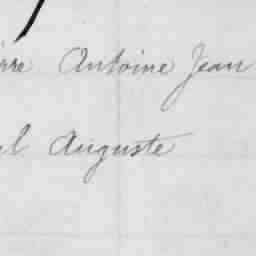 rre Antoine Jean
l Auguste